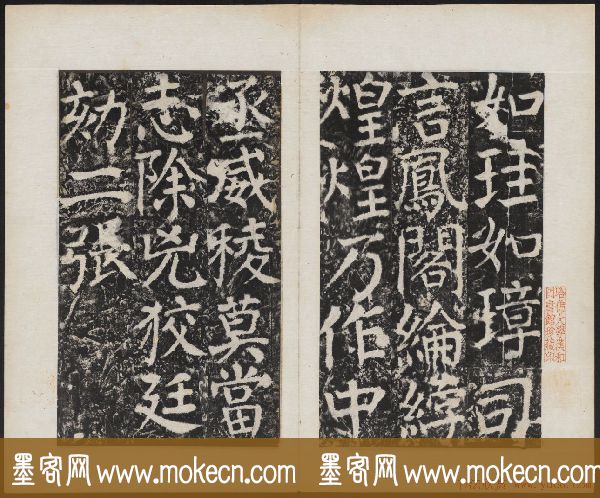 如珪如璋司
言鳳閣綸綍
煌煌乃作中
丞威稜莫當
志除兇狡廷
劾二張
墨客网 www.mokecn.com
墨客网 www.mokecn.com